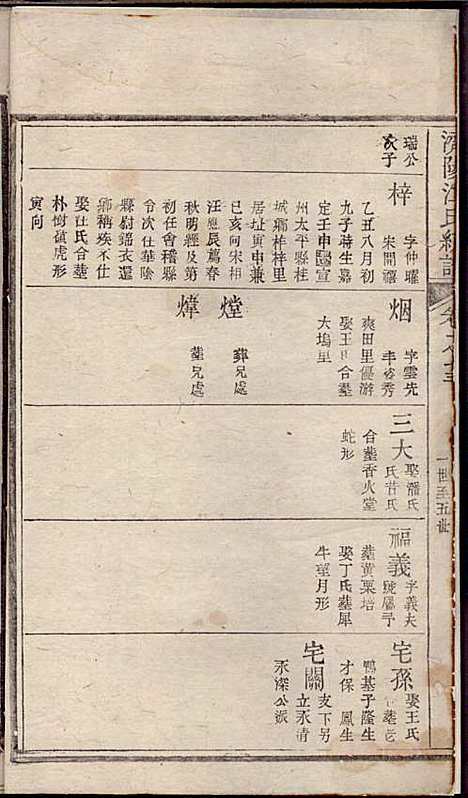 瑞公
次子
梓
字仲曜
宋開禧
乙丑八月初
九子時生嘉
定壬申
宣
州太平縣桂
城鄉梓梓里
居址寅申兼
巳亥向宋相
汪應辰薦春
秋明經及第
初任會稽縣
令次仕華陰
縣尉錦衣還
鄉稱疾不仕
娶汪氏合塟
朴樹嶺虎形
寅向
烟
字雲先
丰姿秀
爽田里優游
娶王氏合塟
大塢里
熞
葬兄處
煒
塟兄處
三大
娶潘氏
氏昔氏
合塟香火堂
蛇形
福義
字義夫
塟黃栗培
娶丁氏塟犀
牛望月形
宅孫
娶王氏
鴨基子隆生
才保 鳳生
宅關
支下另
立永清
永深公派
濟陽江氏統譜
一世至五世